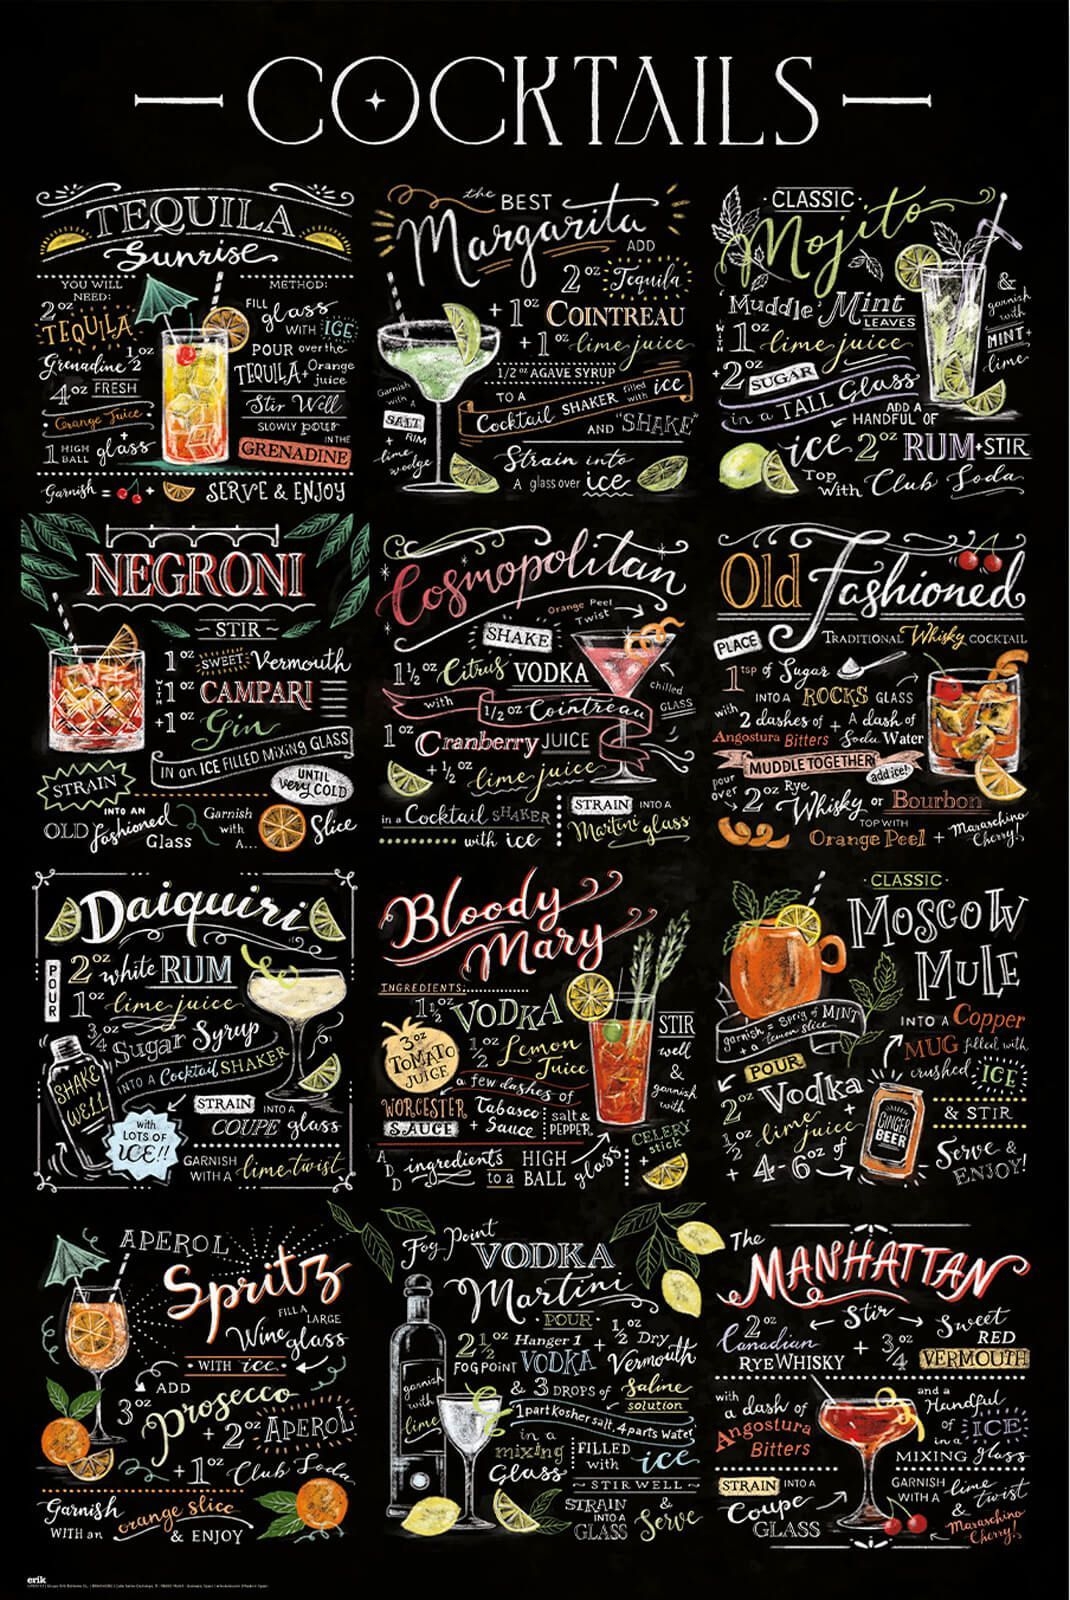 COCKTAILS
TEQUILA
Sunrise
YOU WILL
NEED:
2oz
TEQUILA
Grenadine 1/2 oz
4oz FRESH
Orange Juice
+
1 HIGH BALL glass
METHOD:
FILL glass
WITH ICE
POUR over the
TEQUILA + Orange juice
Stir Well
SLOWLY pour
IN THE
GRENADINE
Garnish = + SERVE & ENJOY
the BEST
Margarita
ADD
2oz Tequila
+ 1oz COINTREAU
+ 1oz lime juice
1/2oz AGAVE SYRUP
TO A
Cocktail SHAKER filled with ice
AND "SHAKE"
Garnish
with a
SALT
RIM
+
lime
wedge
Strain into
A glass over ice
CLASSIC
Mojito
'Muddle' Mint
LEAVES
WITH 1oz lime juice
+ 2oz SUGAR
in a TALL Glass
ADD A
HANDFUL OF
ice 2oz RUM + STIR
Top With Club Soda
&
garnish
with
MINT +
lime
NEGRONI
STIR
1oz SWEET Vermouth
WITH 1oz CAMPARI
+1oz Gin
IN an ICE FILLED MIXING GLASS
STRAIN
UNTIL
very COLD
INTO AN
OLD fashioned
Glass
Garnish
with
A... Slice
Cosmopolitan
Orange Peel
Twist
SHAKE
1 1/2 oz Citrus VODKA
with 1/2 oz Cointreau
chilled
GLASS
1oz Cranberry JUICE
+ 1/2 oz lime juice
in a Cocktail SHAKER
with ice
STRAIN INTO A
Martini glass
Old Fashioned
PLACE
TRADITIONAL Whisky COCKTAIL
1tsp of Sugar
INTO A ROCKS GLASS
with 2 dashes of + A dash of
Angostura Bitters Soda Water
MUDDLE TOGETHER
add ice!
pour
over
2oz Rye
Whisky or Bourbon
TOP WITH
Orange Peel + Maraschino
Cherry!
Daiquiri
POUR
2oz white RUM
1oz lime juice
3/4 oz Sugar Syrup
INTO A Cocktail SHAKER
SHAKE
WELL
with
LOTS OF
ICE!!
STRAIN INTO A
COUPE glass
GARNISH
WITH A lime twist
Bloody
Mary
INGREDIENTS:
1 1/2 oz VODKA
3oz
TOMATO
JUICE
1/2 oz Lemon
Juice
a few dashes of
WORCESTER
SAUCE
Tabasco
+ Sauce
salt &
PEPPER
STIR
well
&
garnish
with
CELERY
stick
+
ADD ingredients
to a HIGH
BALL glass
CLASSIC
MOSCOW
MULE
INTO A Copper
MUG filled with
crushed ICE
garnish = Sprig of MINT
+ a lemon slice
POUR
2oz Vodka
+
1/2 oz lime juice
+ 4-6oz of
GINGER
BEER
& STIR
Serve &
ENJOY!
APEROL
Spritz
FILL A
LARGE
Wine glass
WITH ice
ADD
3oz Prosecco
+ 2oz APEROL
+1oz Club Soda
Garnish
WITH an orange slice
& ENJOY
Fog Point
VODKA
Martini
POUR
2 1/2 oz Hanger 1
FOG POINT VODKA
+ 1/2 oz Dry
Vermouth
& 3 DROPS of Saline
solution
1 part kosher salt, 4 parts water
garnish
with
lime
in a
mixing
Glass
FILLED
with ice
STIR WELL
STRAIN
INTO A
GLASS
&
Serve
The
MANHATTAN
Stir
2oz
Canadian
RYE WHISKY
+ 3/4 oz
Sweet
RED
VERMOUTH
with
a dash of
Angostura
Bitters
and a
Handful
of ICE
in a
MIXING glass
STRAIN INTO A
Coupe
GLASS
GARNISH
WITH A lime
twist
&
Maraschino
Cherry!
erik